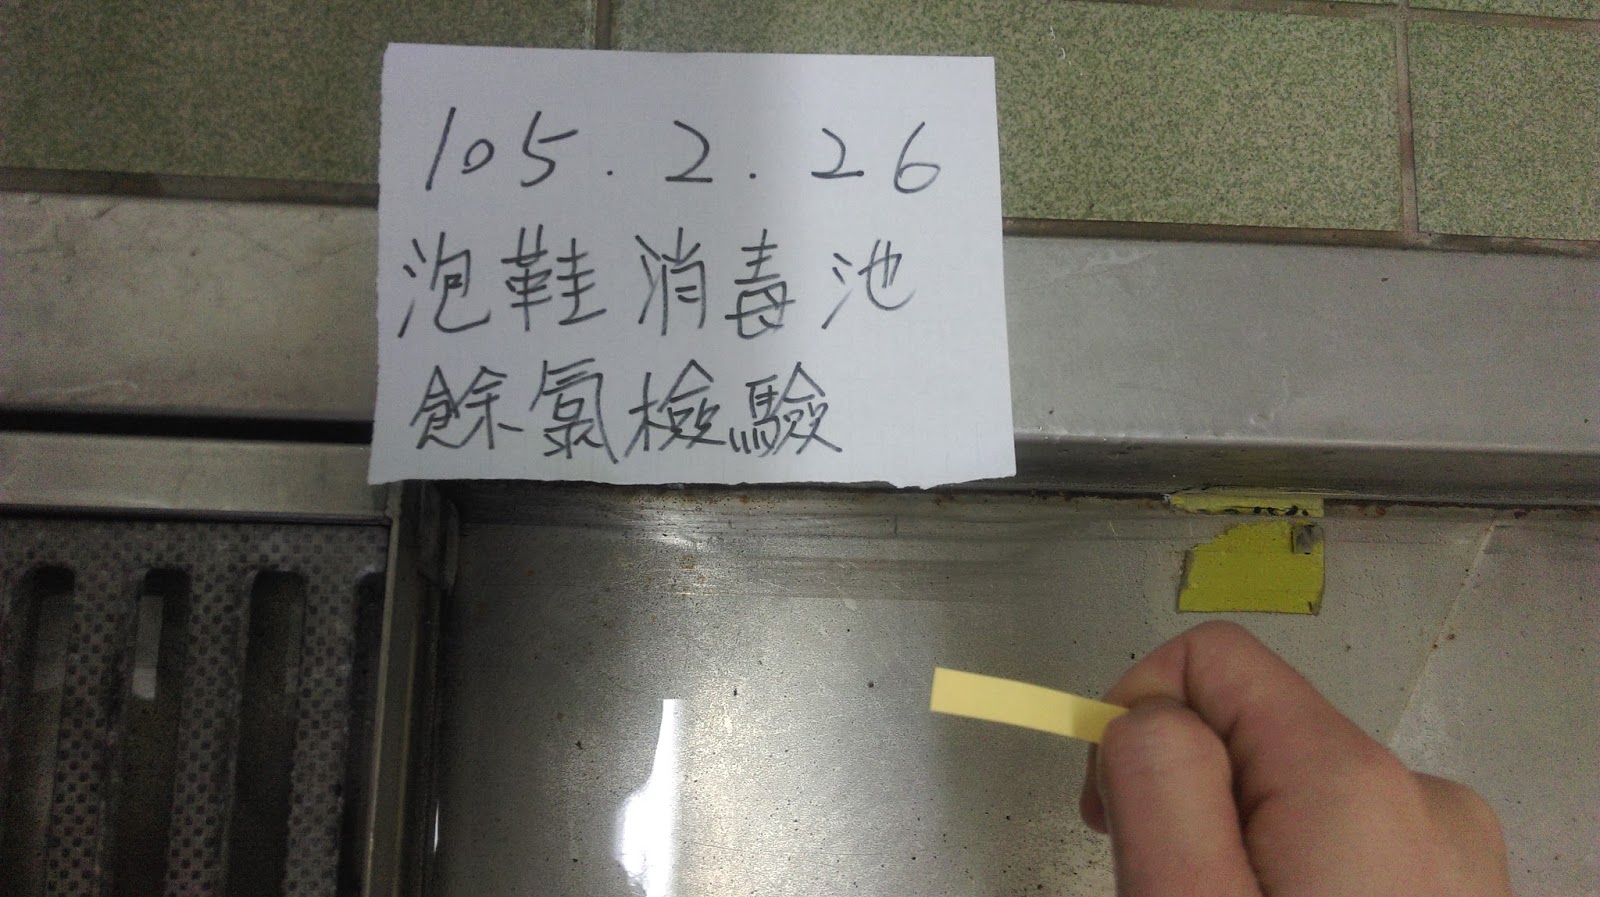 105.2.26
泡鞋消毒池
餘氯檢驗